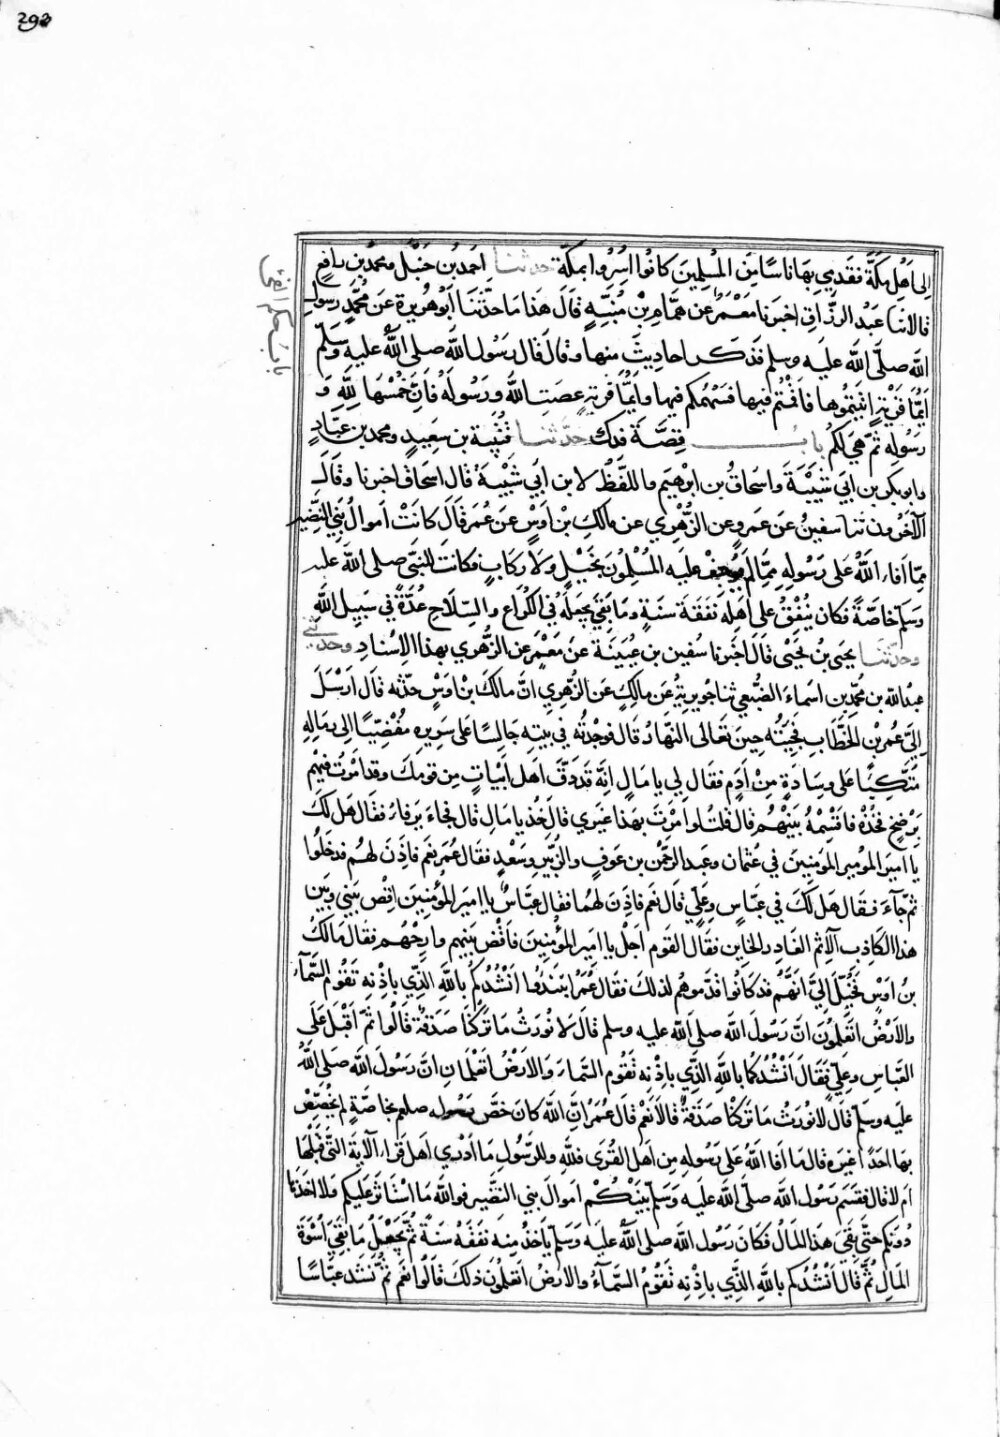 293
باب حكم الفئ
إِلى أَهْلِ مَكَّةَ فَفَدي بِهَا نَاسًا مِنَ المُسلِمِينَ كَانُوا أُسِرُوا بمكَّةَ حدثنا احمد بن حنبل ومحمد بن رافع
قالا ثنا عبد الرزاق اخبرنا معمر عن همام بن منبه قال هذا ما حدثنا أبو هريرة عن محمد رسول
الله صلى الله عليه وسلم فذكر احاديث منها وقال قال رسول الله صلى الله عليه وسلم
أيما قرية اتيتموها فاقمتم فيها فسهمكم فيها وايما قرية عصت الله ورسوله فان خمسها لله و
رسوله ثم هي لكم باب قصة فدك حدثنا قتيبة بن سعيد ومحمد بن عباد
وابو بكر بن ابي شيبة واسحاق بن ابرهيم واللفظ لابن ابي شيبة قال اسحاق اخبرنا وقال
الآخرون ثنا سفين عن عمرو عن الزهري عن مالك بن اوس عن عمر قال كانت اموال بني النضير
مما افاء الله على رسوله مما لم يوجف عليه المسلمون بخيل ولا ركاب فكانت للنبي صلى الله عليه
وسلم خاصة فكان ينفق على اهله نفقة سنة وما بقي يجعله في الكراع والسلاح عدة في سبيل الله
وحدثنا يحيى بن يحيى قال اخبرنا سفين بن عيينة عن معمر عن الزهري بهذا الاسناد وحدثني
عبد الله بن محمد بن اسماء الضبعي ثنا جويرية عن مالك عن الزهري ان مالك بن اوس حدثه قال ارسل
الي عمر بن الخطاب فجئته حين تعالى النهار قال فوجدته في بيته جالسا على سريره مفضيا الى رماله
متكئا على وسادة من ادم فقال لي يا مال انه قد دف اهل ابيات من قومك وقد امرت فيهم
برضخ فخذه فاقسمه بينهم قال قلت لو امرت بهذا غيري قال خذ يا مال قال فجاء يرفاء فقال هل لك
يا امير المومير المومنين في عثمان وعبد الرحمن بن عوف والزبير وسعد فقال عمر نعم فاذن لهم فدخلوا
ثم جاء فقال هل لك في عباس وعلي قال نعم فاذن لهما فقال عباس يا امير المؤمنين اقض بيني وبين
هذا الكاذب الآثم الغادر الخاين فقال القوم اجل يا امير المؤمنين فاقض بينهم وارحهم فقال مالك
بن اوس فخيل الي انهم قد كانوا قدموهم لذلك فقال عمر ايتدوا انشدكم بالله الذي باذنه تقوم السماء
والارض اتعلمون ان رسول الله صلى الله عليه وسلم قال لا نورث ما تركنا صدقة قالوا ثم اقبل على
العباس وعلي فقال انشدكما بالله الذي باذنه تقوم السماء والارض اتعلمان ان رسول الله صلى الله
عليه وسلم قال لا نورث ما تركنا صدقة قالا نعم قال عمر ان الله كان خص رسوله صلعم بخاصة لم يخصص
بها احدا غيره قال ما افا الله على رسوله من اهل القرى فلله وللرسول ما ادري اهل قراء الآية التي قبلها
ام لا قال فقسم رسول الله صلى الله عليه وسلم بينكم اموال بني النضير فو الله ما استاثر عليكم ولا اخذها
دونكم حتى بقي هذا المال فكان رسول الله صلى الله عليه وسلم ياخذ منه نفقة سنة ثم يجعل ما بقي اسوة
المال ثم قال انشدكم بالله الذي باذنه تقوم السماء والارض اتعلمون ذلك قالوا نعم ثم نشد عباسا